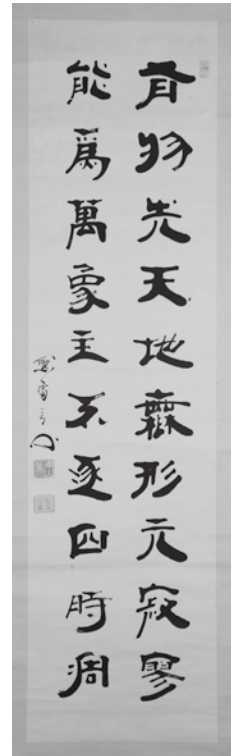 有物先天地無形元寂寥
能爲萬象主不逐四時凋